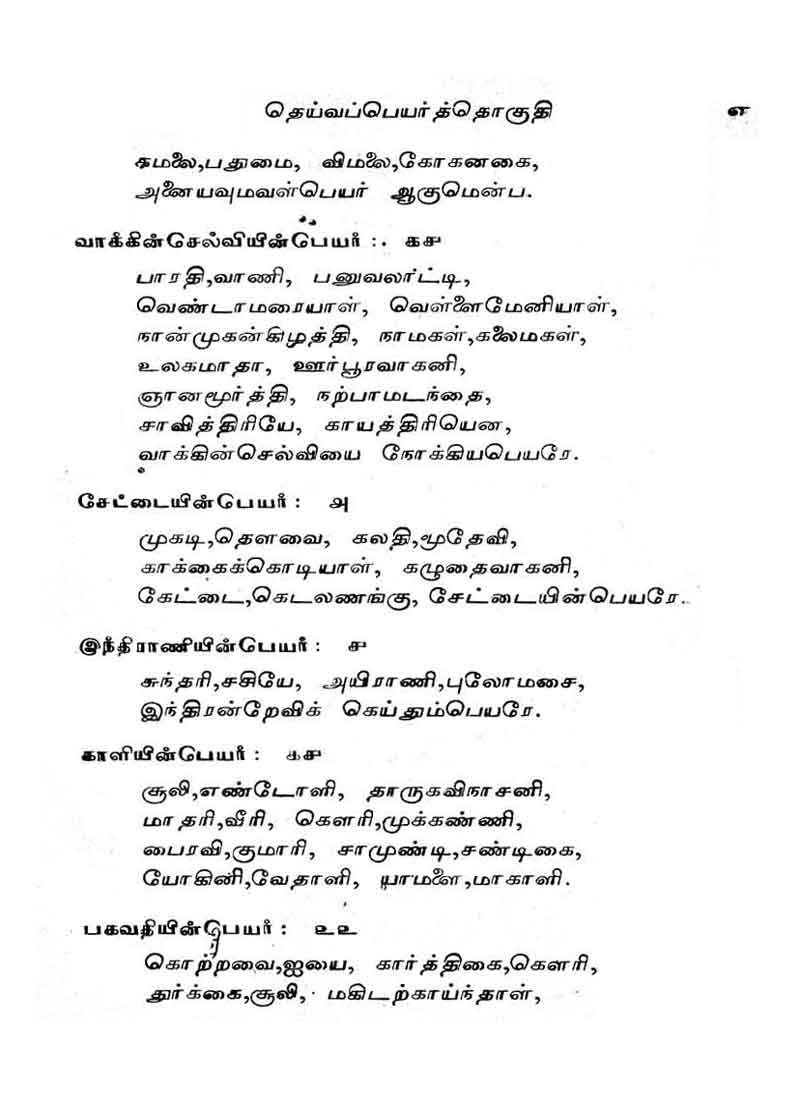 தெய்வப்பெயர்த்தொகுதி ௭
கமலை,பதுமை, விமலை,கோகனகை,
அனையவுமவள்பெயர் ஆகுமென்ப.
வாக்கின்செல்வியின்பெயர் : ௧௪
பாரதி,வாணி, பனுவலாட்டி,
வெண்டாமரையாள், வெள்ளைமேனியாள்,
நான்முகன்கிழத்தி, நாமகள்,கலைமகள்,
உலகமாதா, ஊர்பூரவாகனி,
ஞானமூர்த்தி, நற்பாமடந்தை,
சாவித்திரியே, காயத்திரியென,
வாக்கின்செல்வியை நோக்கியபெயரே.
சேட்டையின்பெயர் : ௮
முகடி,தௌவை, கலதி,மூதேவி,
காக்கைக்கொடியாள், கழுதைவாகனி,
கேட்டை,கெடலணங்கு, சேட்டையின்பெயரே.
இந்திராணியின்பெயர் : ௪
சுந்தரி,சசியே, அயிராணி,புலோமசை,
இந்திரன்றேவிக் கெய்தும்பெயரே.
காளியின்பெயர் : ௧௪
சூலி,எண்டோளி, தாருகவிநாசனி,
மாதரி,வீரி, கௌரி,முக்கண்ணி,
பைரவி,குமாரி, சாமுண்டி,சண்டிகை,
யோகினி,வேதாளி, யாமளை,மாகாளி.
பகவதியின்பெயர் : ௨௨
கொற்றவை,ஐயை, கார்த்திகை,கௌரி,
துர்க்கை,சூலி, மகிடற்காய்ந்தாள்,